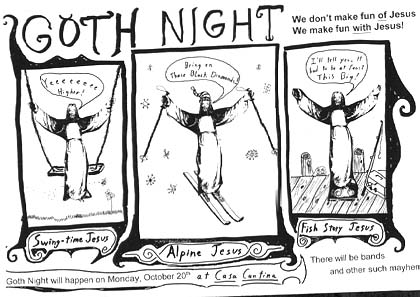 GOTH NIGHT
We don't make fun of Jesus
We make fun with Jesus!
Yeeeeeeeee
Higher!
Bring on
Those Black Diamonds!
I'll tell you, it
had to be at least
This Big!
Swing-time Jesus
Alpine Jesus
Fish Story Jesus
Goth Night will happen on Monday, October 20th at Casa Cantina
There will be bands
and other such mayhem